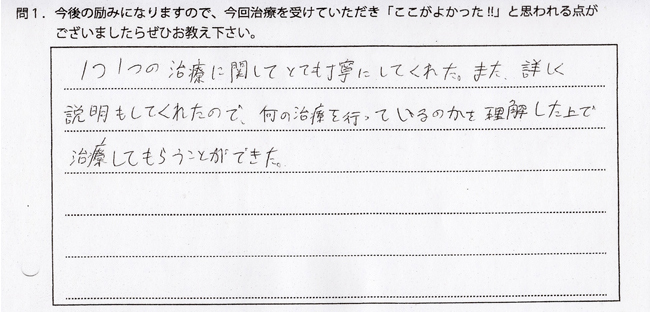 問1．今後の励みになりますので、今回治療を受けていただき「ここがよかった!!」と思われる点が
ございましたらぜひお教え下さい。
1つ1つの治療に関してとても丁寧にしてくれた。また、詳しく
説明もしてくれたので、何の治療を行っているのかを理解した上で
治療してもらうことができた。